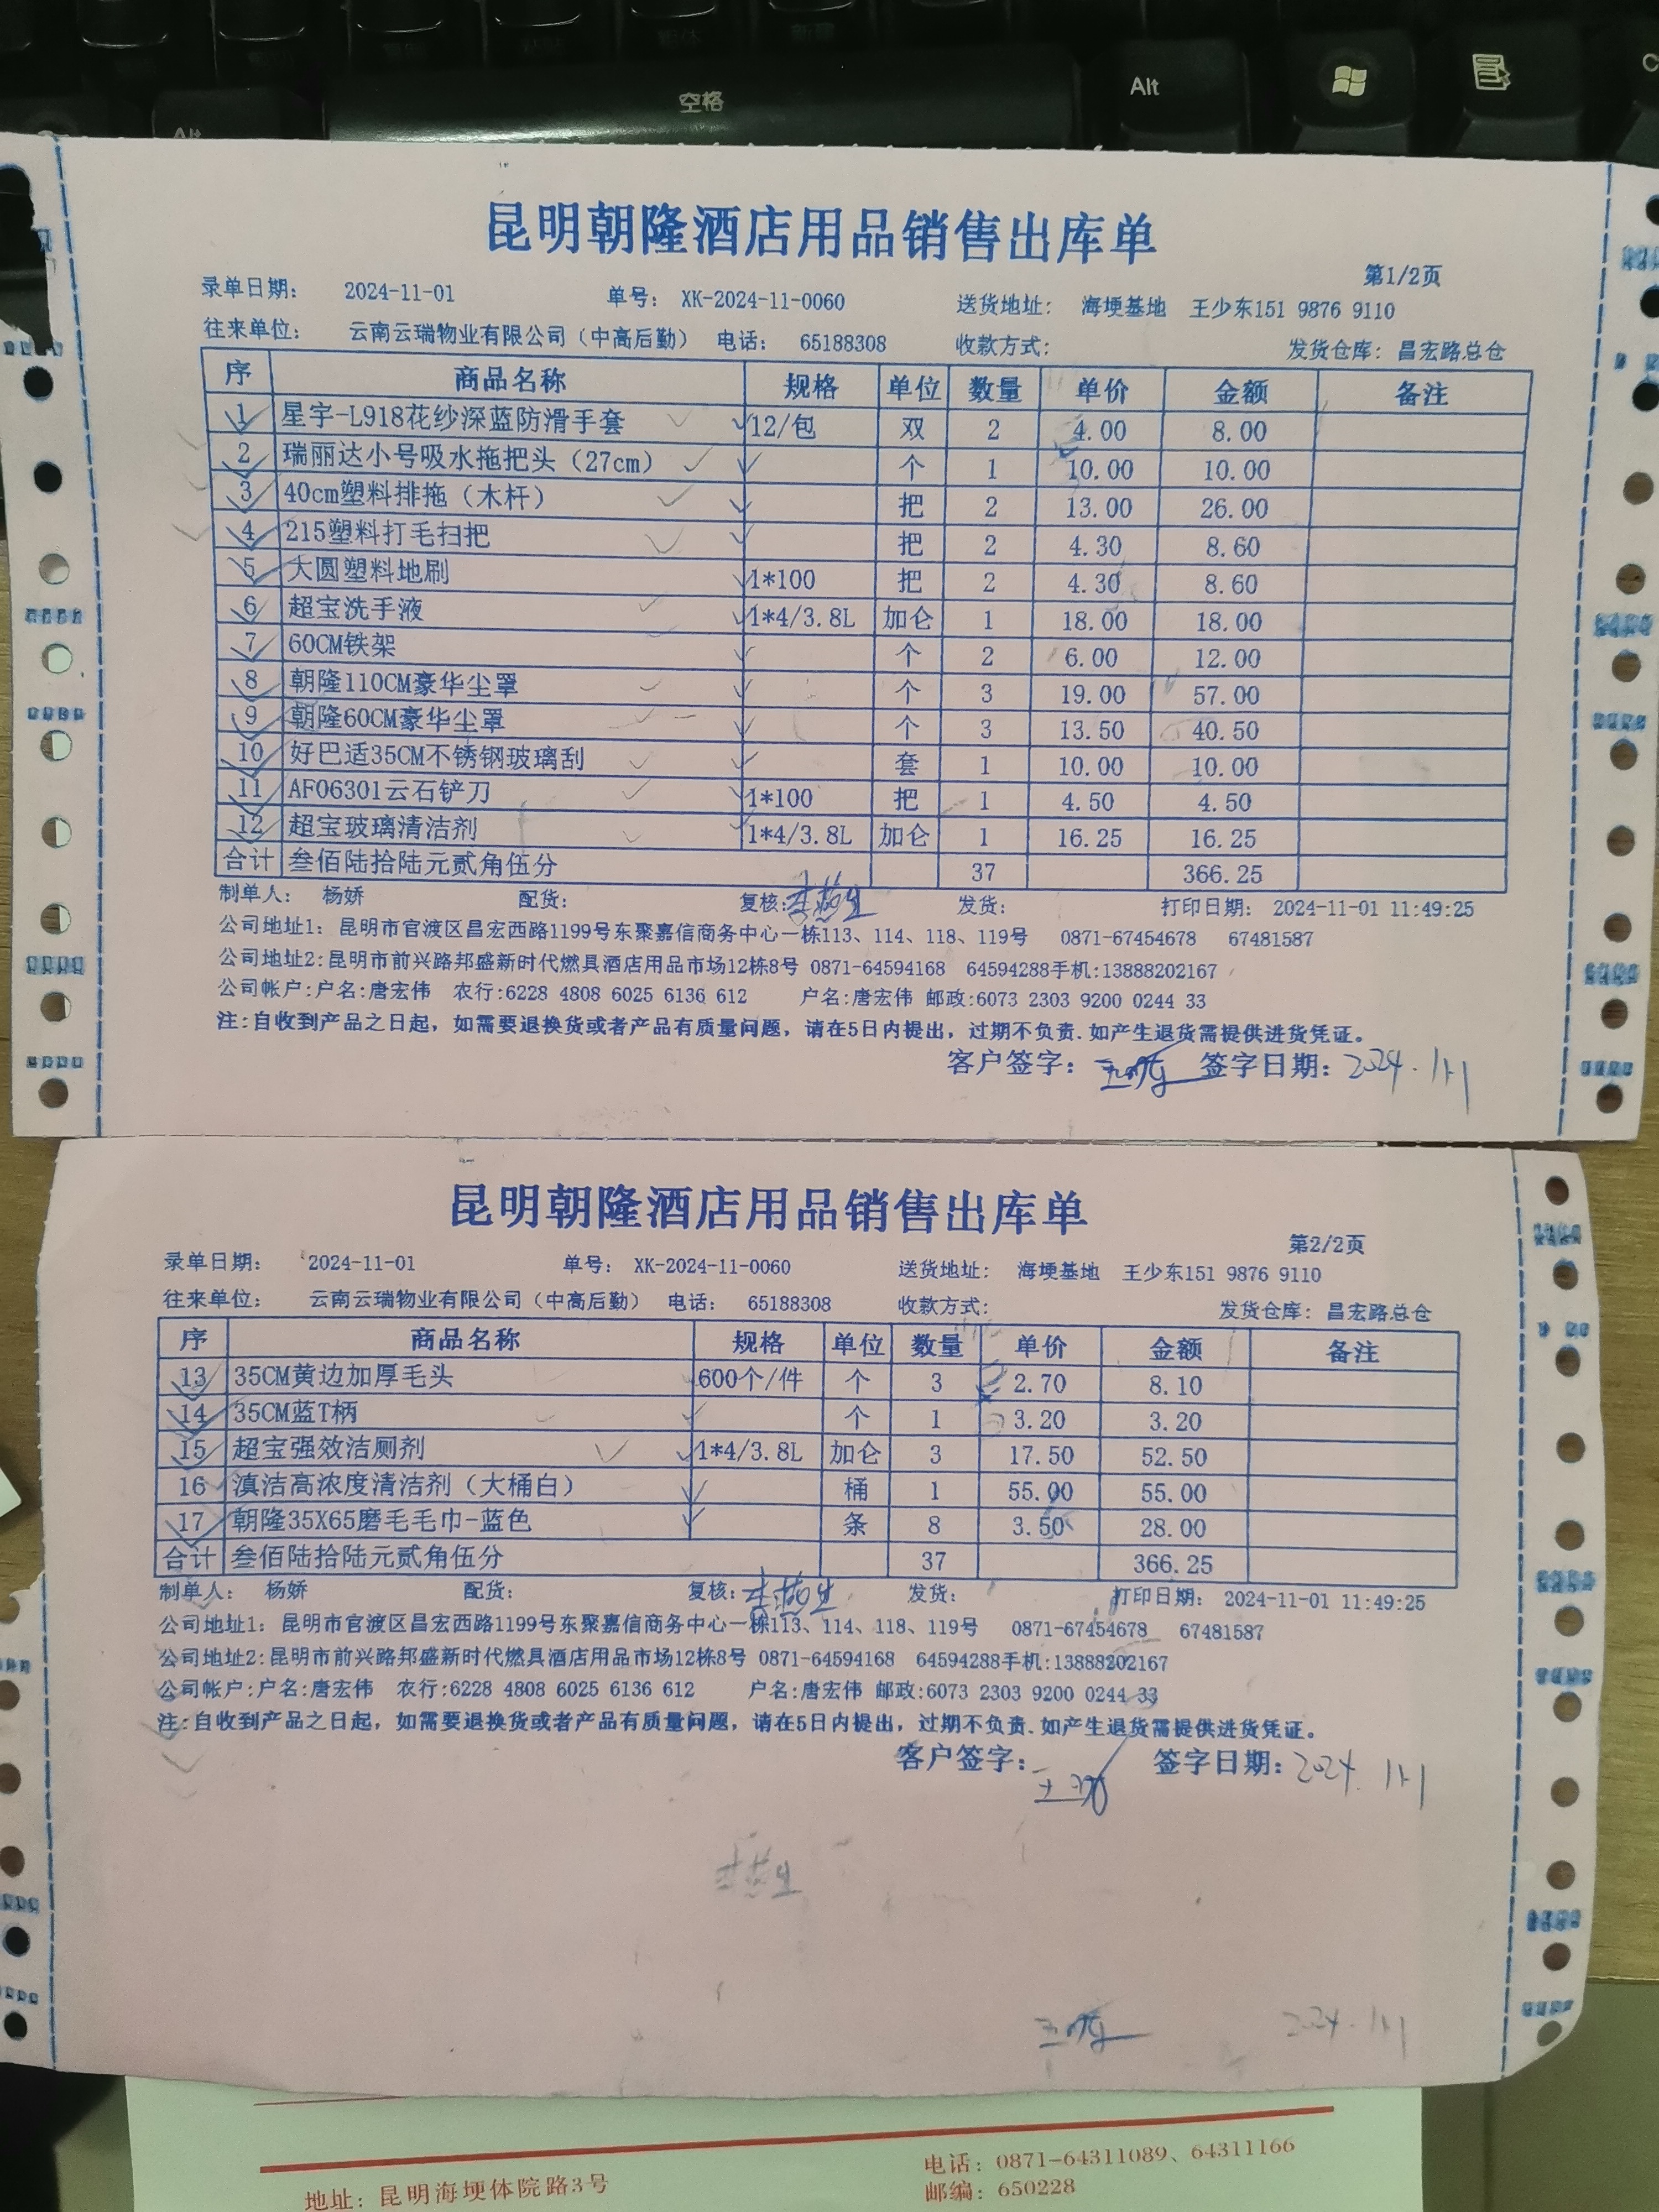 空格
Alt
Alt
昆明朝隆酒店用品销售出库单
第1/2页
录单日期: 2024-11-01 单号: XK-2024-11-0060 送货地址: 海埂基地 王少东151 9876 9110
往来单位: 云南云瑞物业有限公司（中高后勤） 电话: 65188308 收款方式: 发货仓库: 昌宏路总仓
序 商品名称 规格 单位 数量 单价 金额 备注
1 星宇-L918花纱深蓝防滑手套 12/包 双 2 4.00 8.00
2 瑞丽达小号吸水拖把头（27cm） 个 1 10.00 10.00
3 40cm塑料排拖（木杆） 把 2 13.00 26.00
4 215塑料打毛扫把 把 2 4.30 8.60
5 大圆塑料地刷 1*100 把 2 4.30 8.60
6 超宝洗手液 1*4/3.8L 加仑 1 18.00 18.00
7 60CM铁架 个 2 6.00 12.00
8 朝隆110CM豪华尘罩 个 3 19.00 57.00
9 朝隆60CM豪华尘罩 个 3 13.50 40.50
10 好巴适35CM不锈钢玻璃刮 套 1 10.00 10.00
11 AF06301云石铲刀 1*100 把 1 4.50 4.50
12 超宝玻璃清洁剂 1*4/3.8L 加仑 1 16.25 16.25
合计 叁佰陆拾陆元贰角伍分 37 366.25
制单人: 杨娇 配货: 复核: 发货: 打印日期: 2024-11-01 11:49:25
公司地址1: 昆明市官渡区昌宏西路1199号东聚嘉信商务中心一栋113、114、118、119号 0871-67454678 67481587
公司地址2:昆明市前兴路邦盛新时代燃具酒店用品市场12栋8号 0871-64594168 64594288手机:13888202167
公司帐户:户名:唐宏伟 农行:6228 4808 6025 6136 612 户名:唐宏伟 邮政:6073 2303 9200 0244 33
注:自收到产品之日起，如需要退换货或者产品有质量问题，请在5日内提出，过期不负责.如产生退货需提供进货凭证。
客户签字: 签字日期: 2024.11.1
昆明朝隆酒店用品销售出库单
第2/2页
录单日期: 2024-11-01 单号: XK-2024-11-0060 送货地址: 海埂基地 王少东151 9876 9110
往来单位: 云南云瑞物业有限公司（中高后勤） 电话: 65188308 收款方式: 发货仓库: 昌宏路总仓
序 商品名称 规格 单位 数量 单价 金额 备注
13 35CM黄边加厚毛头 600个/件 个 3 2.70 8.10
14 35CM蓝T柄 个 1 3.20 3.20
15 超宝强效洁厕剂 1*4/3.8L 加仑 3 17.50 52.50
16 滇洁高浓度清洁剂（大桶白） 桶 1 55.00 55.00
17 朝隆35X65磨毛毛巾-蓝色 条 8 3.50 28.00
合计 叁佰陆拾陆元贰角伍分 37 366.25
制单人: 杨娇 配货: 复核: 发货: 打印日期: 2024-11-01 11:49:25
公司地址1: 昆明市官渡区昌宏西路1199号东聚嘉信商务中心一栋113、114、118、119号 0871-67454678 67481587
公司地址2:昆明市前兴路邦盛新时代燃具酒店用品市场12栋8号 0871-64594168 64594288手机:13888202167
公司帐户:户名:唐宏伟 农行:6228 4808 6025 6136 612 户名:唐宏伟 邮政:6073 2303 9200 0244 33
注:自收到产品之日起，如需要退换货或者产品有质量问题，请在5日内提出，过期不负责.如产生退货需提供进货凭证。
客户签字: 签字日期: 2024.11.1
2024.11.1
电话: 0871-64311089、64311166
地址: 昆明海埂体院路3号
邮编: 650228